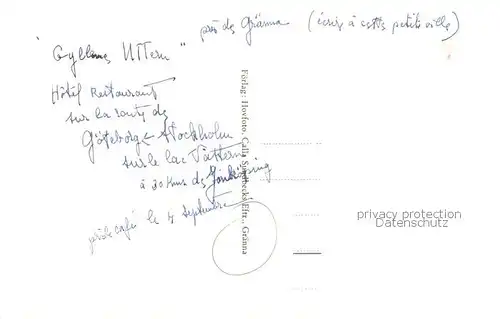 près de Gränna (écris à cette petite ville)
"Gyllene Uttern"
Hôtel Restaurant
sur la route de
Göteborg Stockholm
sur le lac Vättern
à 30 Kms de Jönköping
café le 4 Septembre
Förlag: Hovfoto, Calla Sundbecks Eftr., Gränna
privacy protection
Datenschutz